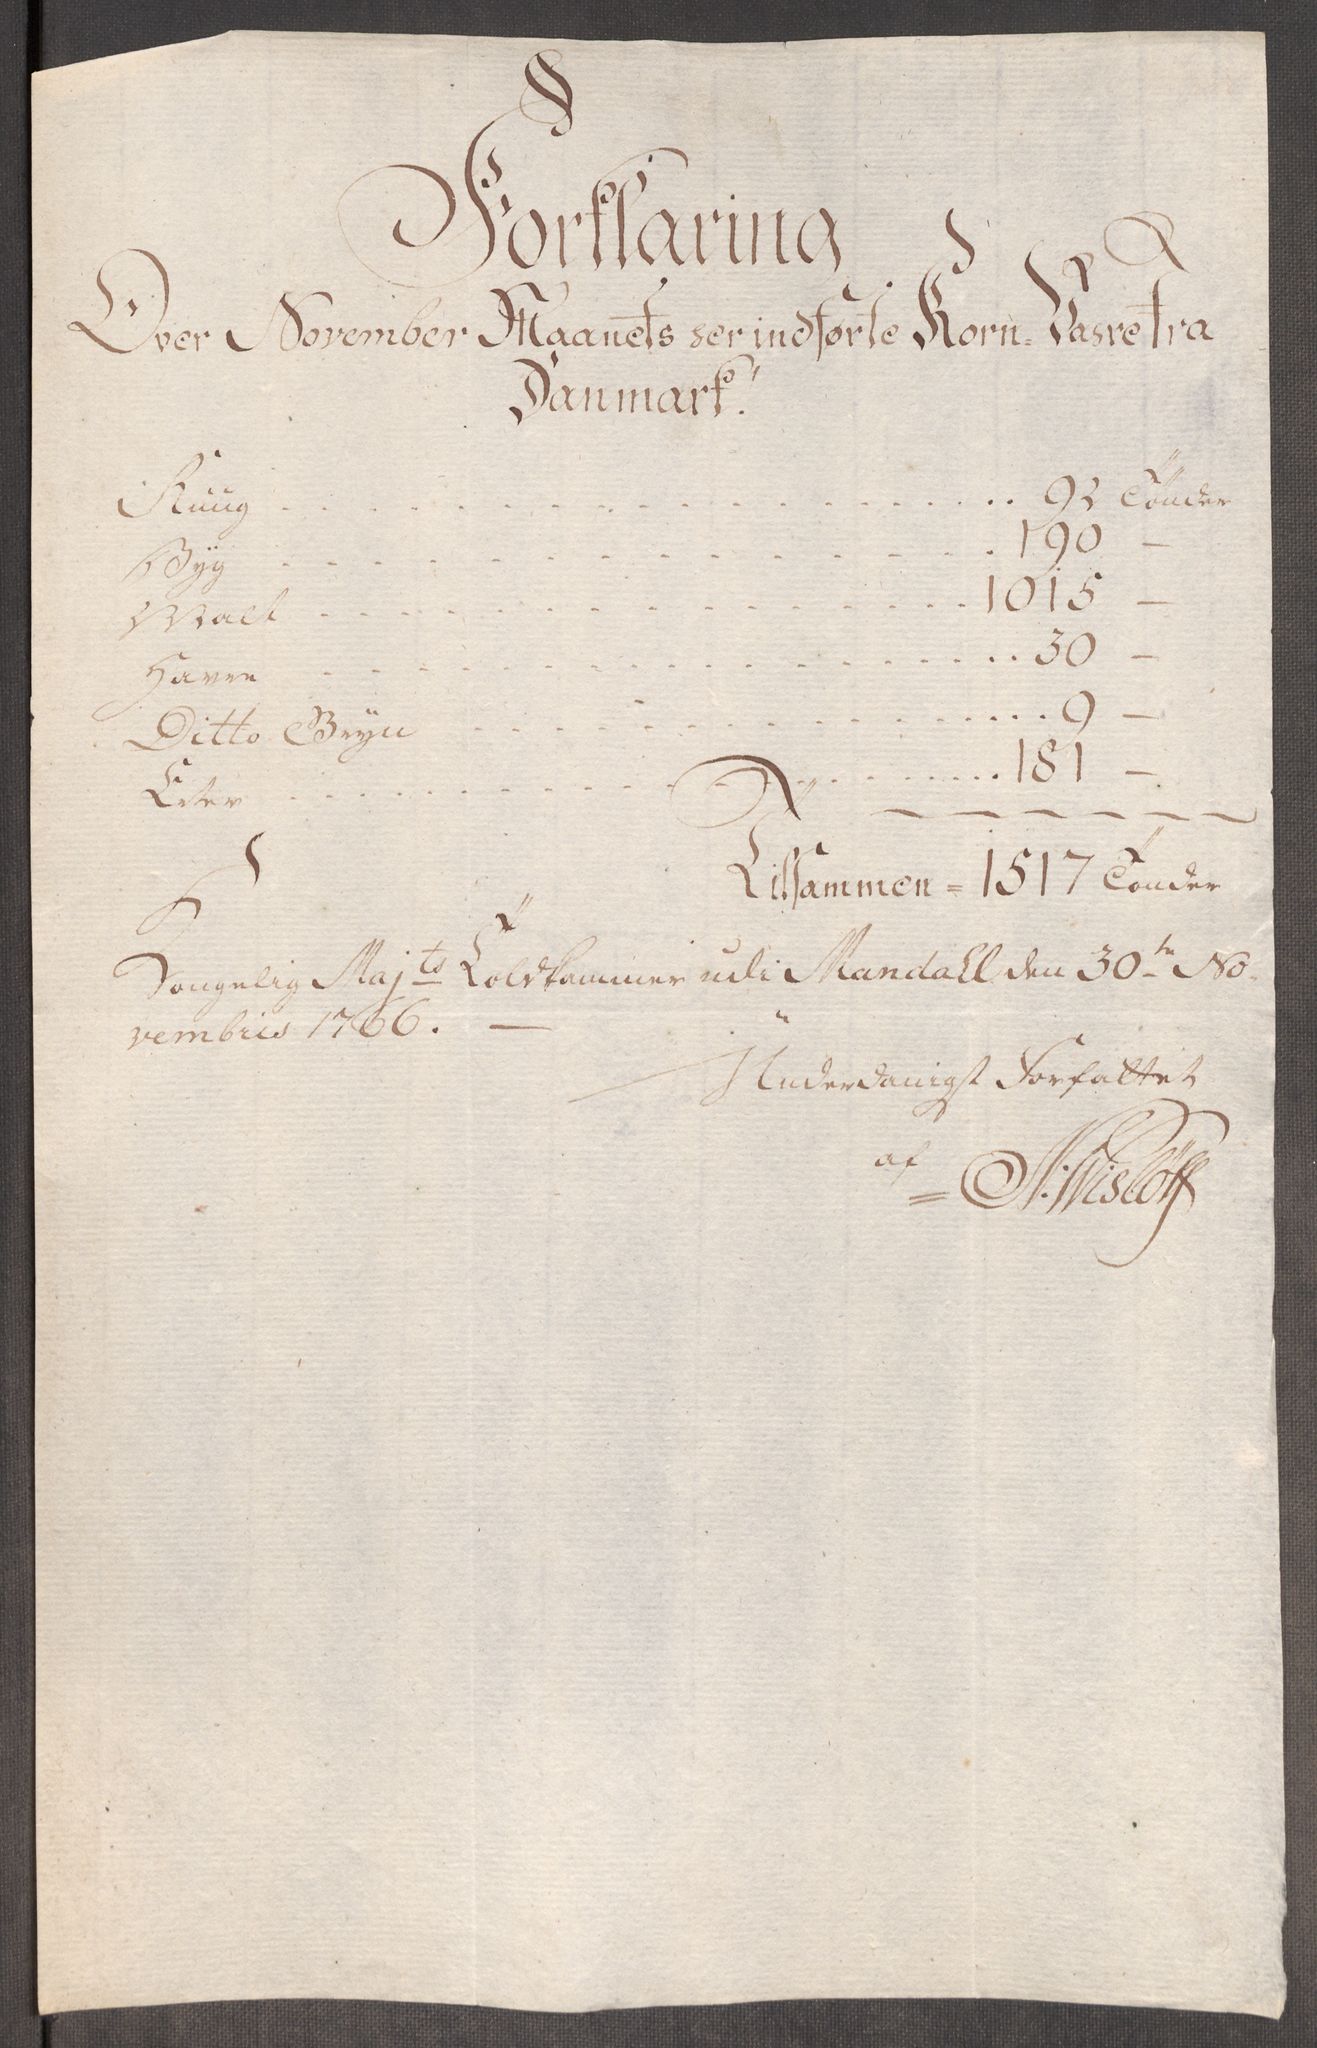 Forklaring
Over November Maanets her indførte Korn-Vahre fra
Danmark.
Ruug . . . . . 92 Tönder
Byg . . . . . 190 —
Malt . . . . . 1015 —
Havre . . . . . 30 —
Ditto Gryn . . . . . 9 —
Erter . . . . . 181 —
Tilsammen = 1517 Tönder
Kongelig Majts Toldkammer udi Mandall den 30te No-
vembris 1766. —
Underdanigst Forfattet
af
= N: Wislöff